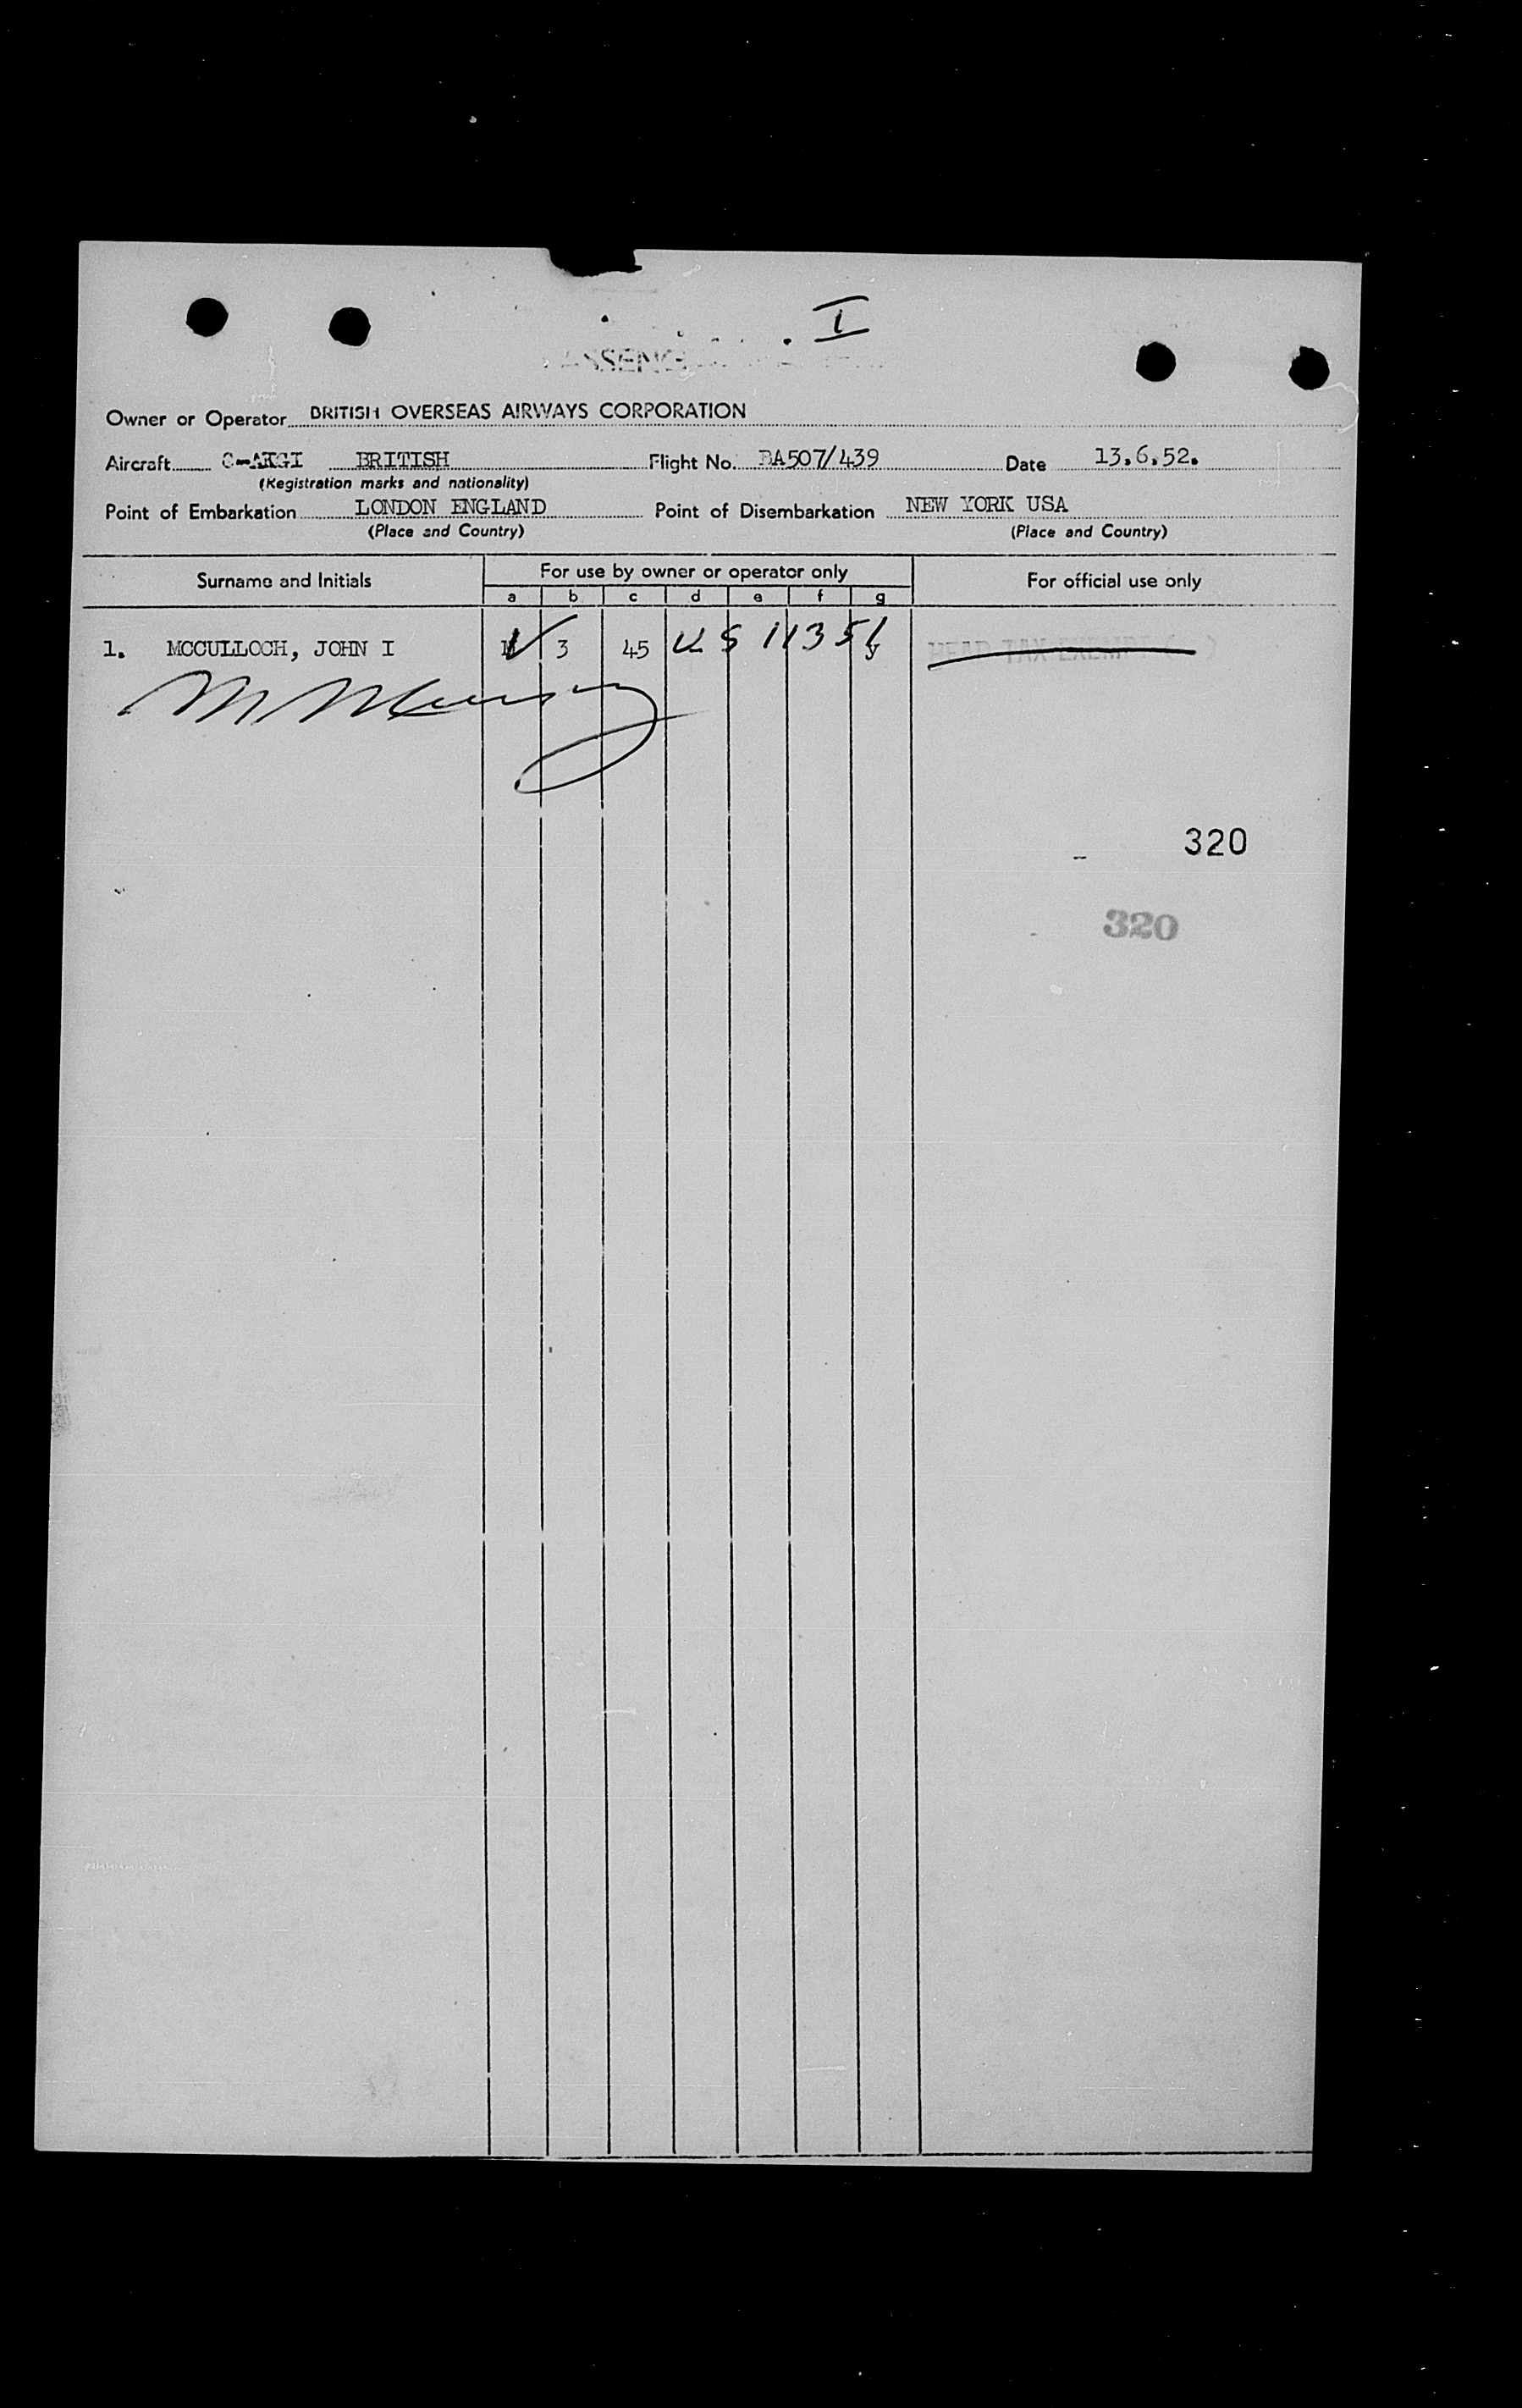 I
Owner or Operator BRITISH OVERSEAS AIRWAYS CORPORATION
Aircraft G-AKGI BRITISH Flight No. BA507/439 Date 13.6.52.
(Registration marks and nationality)
Point of Embarkation LONDON ENGLAND Point of Disembarkation NEW YORK USA
(Place and Country) (Place and Country)
Surname and Initials For use by owner or operator only For official use only
a b c d e f g
1. MCCULLOCH, JOHN I M 3 45 U S HEAD TAX EXEMPT ( )
320
320